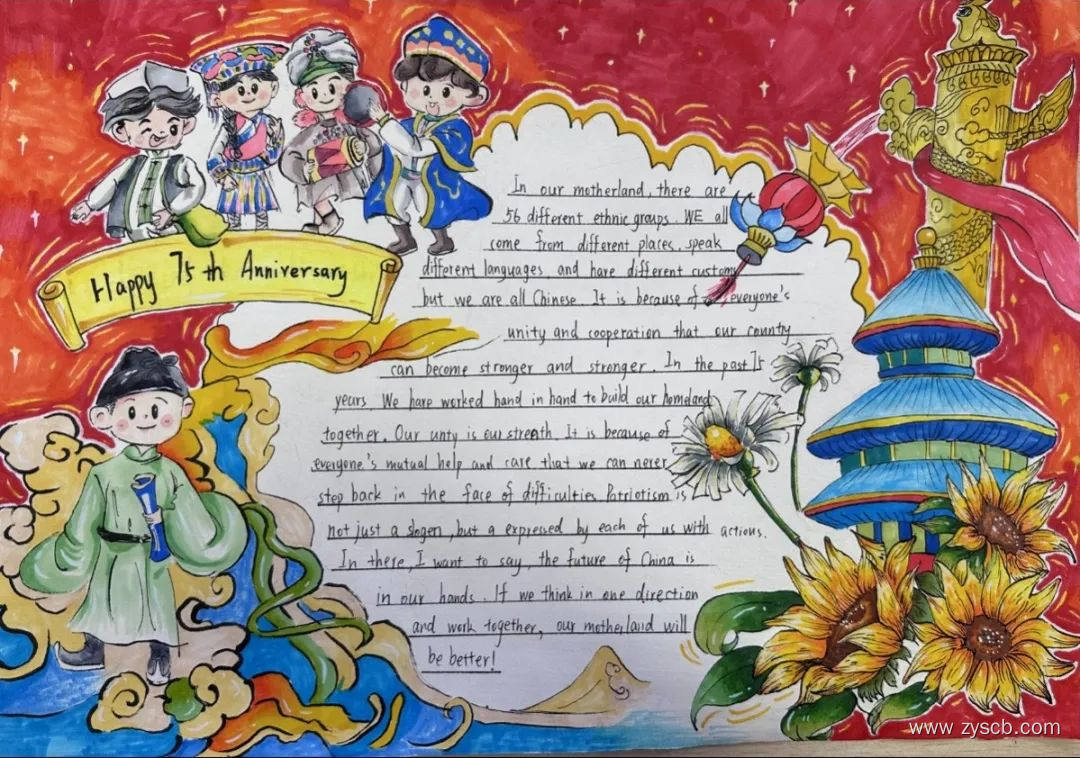 Happy 75th Anniversary
In our motherland, there are
56 different ethnic groups. WE all
come from different places, speak
different languages and have different customs
but we are all Chinese. It is because of everyone's
unity and cooperation that our country
can become stronger and stronger. In the past 75
years. We have worked hand in hand to build our homeland
together. Our unty is our strenth. It is because of
everyone's mutual help and care that we can never
step back in the face of difficulties. Patriotism is
not just a slogen, but a expressed by each of us with actions.
In there, I want to say, the future of China is
in our hands. If we think in one direction
and work together, our motherland will
be better!
www.zyscb.com